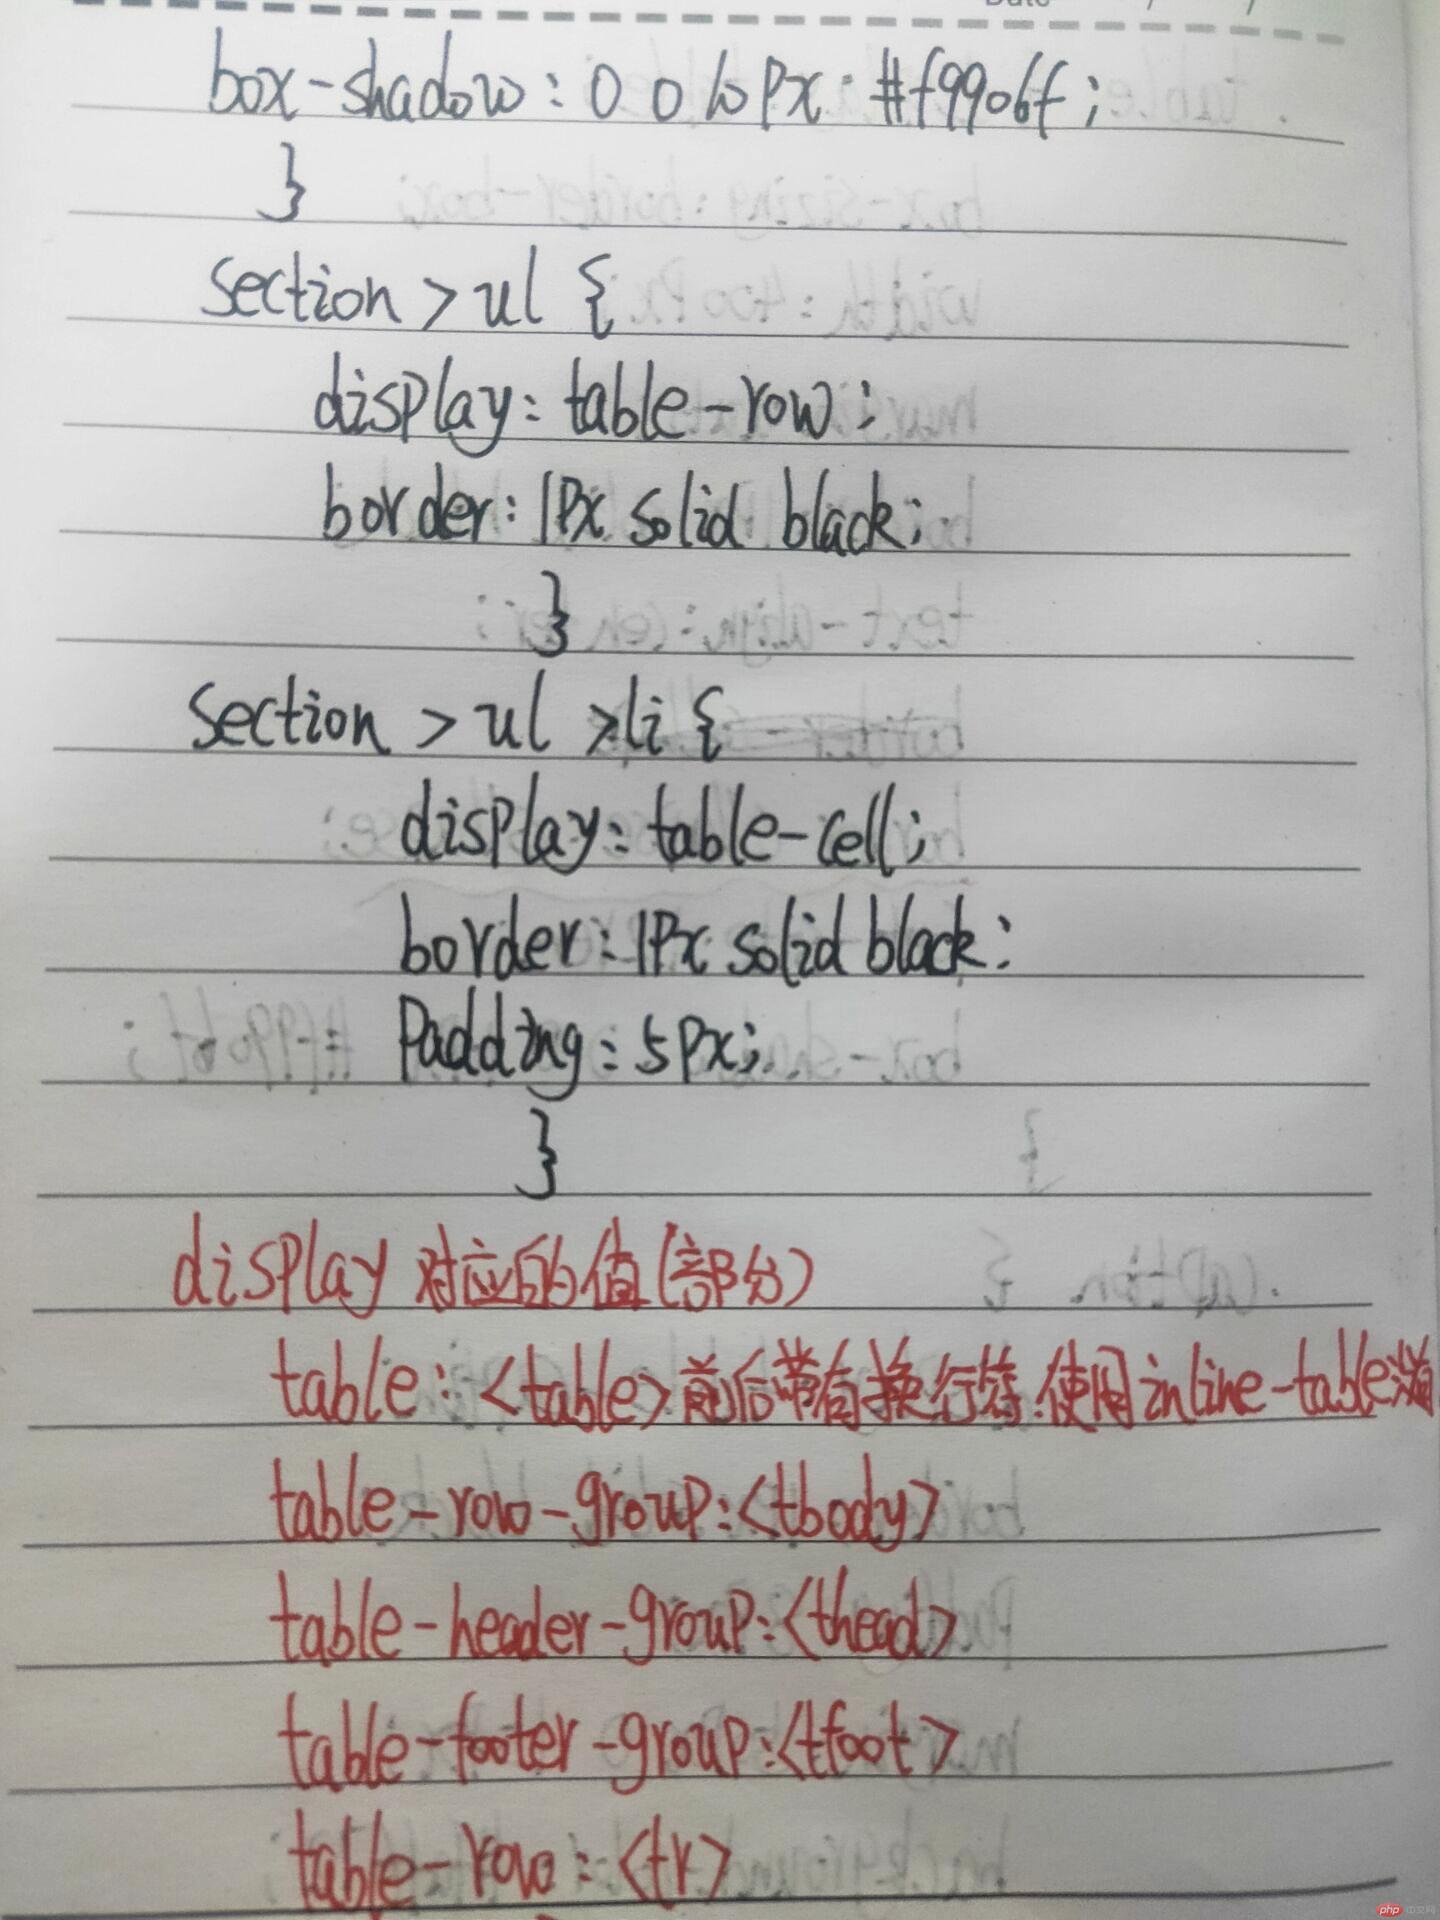 Date / /
box-shadow: 0 0 10px #f9906f;
}
section > ul {
display: table-row;
border: 1Px solid black;
}
section > ul > li {
display: table-cell;
border: 1Px solid black;
Padding: 5Px;
}
display 对应的值(部分)
table: <table>前后带有换行符.使用inline-table
table-row-group:<tbody>
table-header-group:<thead>
table-footer-group:<tfoot>
table-row: <tr>
php 中文网